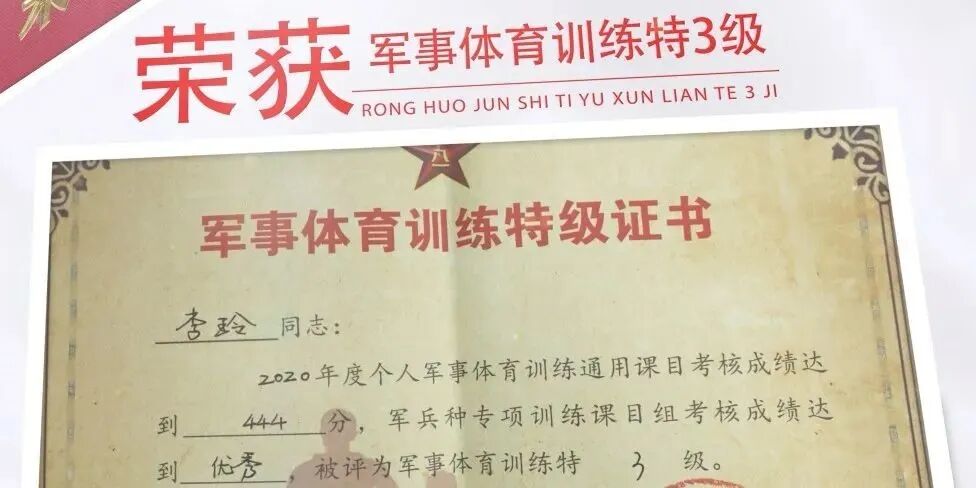 荣获
军事体育训练特3级
RONG HUO JUN SHI TI YU XUN LIAN TE 3 JI
八一
军事体育训练特级证书
李玲同志：
2020年度个人军事体育训练通用课目考核成绩达
到 444 分，军兵种专项训练课目组考核成绩达
到 优秀，被评为军事体育训练特 3 级。